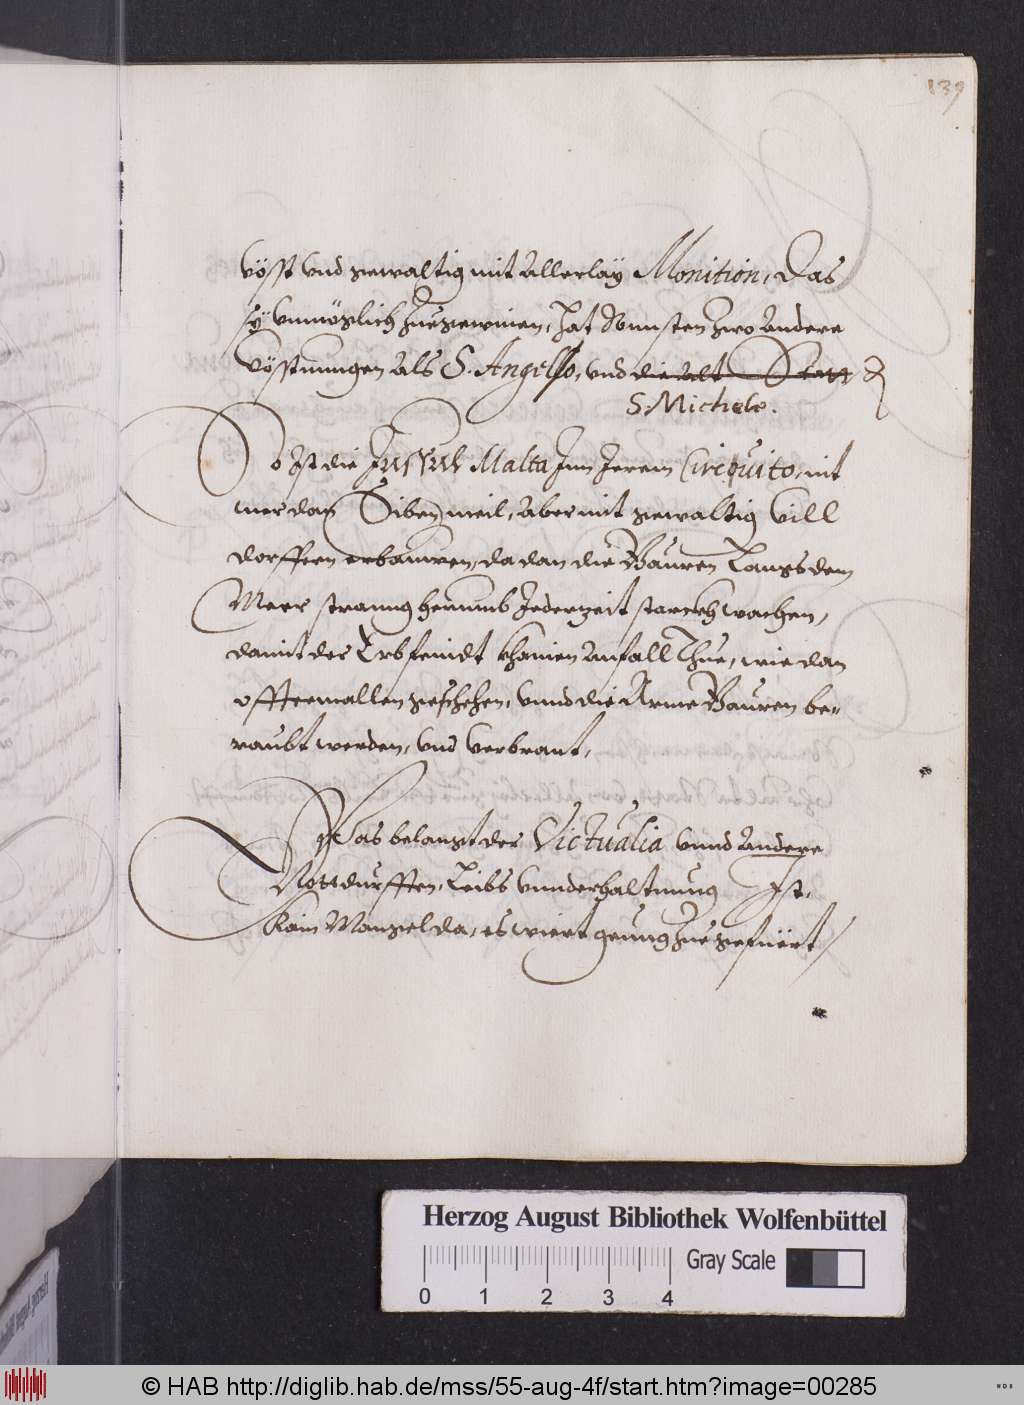 139
vösst vnd gewaltig mit Allerlaÿ Monition, Das
sÿ vnmöglich Zuegewinen, hat Sonnsten zwo Andere
vösstnungen Als S. Angello, vnd die Alt Statt
S: Michele.
So Ist die Inssul Malta Inn Jerem Circquito, nit
mer dan Siben meil, Aber mit gewaltig Vill
dorffern erbauwen, da dan die Bauren Langs dem
Meer stranng herumb Jederzeit starckh wachen,
damit der Erbfeindt khainen Anfall Thue, wie dan
offtermallen geschehen, vnnd die Arme Bauren be-
raubt werden, vnd verbrant,
Was belangt der Victualia vnnd Andere
Notturfften, Leibs vnnderhaltnung Ist,
Kain Mangel da, es wiert genung Zue gefüert
Herzog August Bibliothek Wolfenbüttel
Gray Scale
0 1 2 3 4
© HAB http://diglib.hab.de/mss/55-aug-4f/start.htm?image=00285